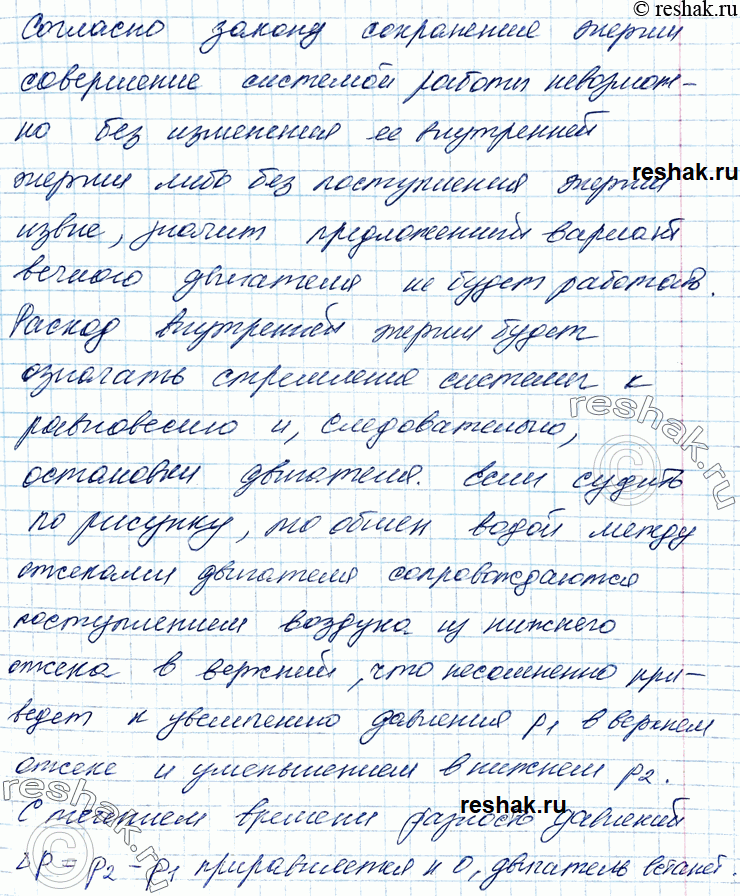 reshak.ru
Согласно закону сохранение энергии
совершение системой работы невозмож-
но без изменения ее внутренней
reshak.ru
энергии либо без поступления энергии
извне, значит предложенный вариант
вечного двигателя не будет работать.
Расход внутренней энергии будет
означать стремление системы к
reshak.ru
равновесию и, следовательно,
остановки двигателя. Если судить
по рисунку, то обмен водой между
отсеками двигателя сопровождаются
поступлением воздуха из нижнего
отсека в верхний, что несомненно при-
ведет к увеличению давления p₁ в верхнем
отсеке и уменьшением в нижнем p₂.
reshak.ru
С течением времени разность давлений
reshak.ru
Δp = p₂ - p₁ приравняется к 0, двигатель встанет.